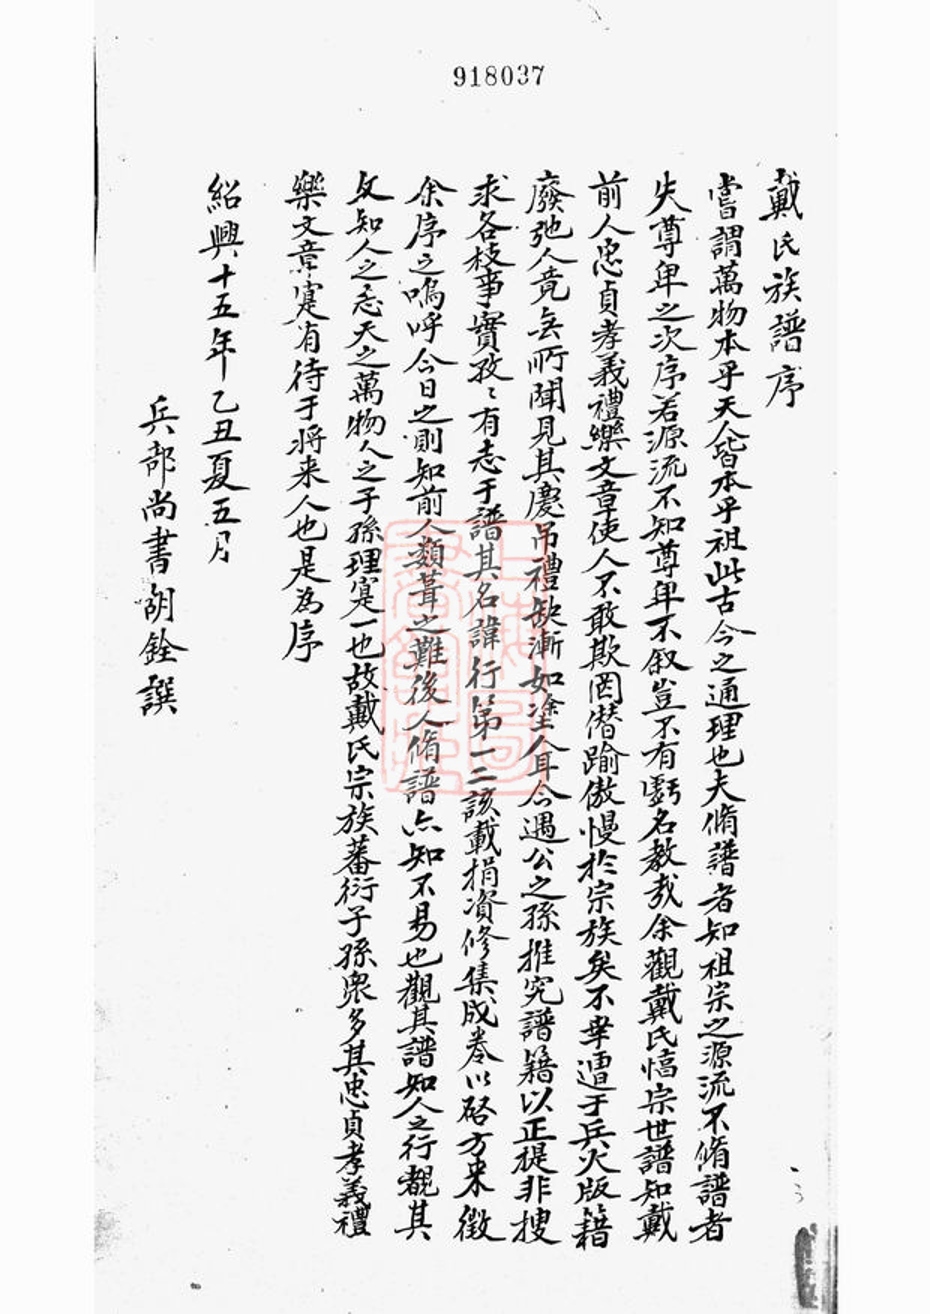 918037
戴氏族譜序
嘗謂萬物本乎天人皆本乎祖此古今之通理也夫脩譜者知祖宗之源流不脩譜者
失尊卑之次序若源流不知尊卑不叙豈不有虧名教哉余觀戴氏宗世譜知戴
前人忠貞孝義禮樂文章使人不敢欺罔僭踰傲慢於宗族矣不幸遭于兵火版籍
廢弛人竟無所聞見其慶吊禮缺漸如塗人耳今遇公之孫推究譜籍以正提非搜
求各枝事實孜〻有志于譜其名諱行第一二該載捐資修集成卷以啓方来徵
余序之嗚呼今日之則知前人類葺之難後人脩譜亦知不易也觀其譜知人之行觀其
文知人之志天之萬物人之子孫理寔一也故戴氏宗族蕃衍子孫衆多其忠貞孝義禮
樂文章寔有待于将来人也是為序
紹興十五年乙丑夏五月
兵部尚書胡銓譔